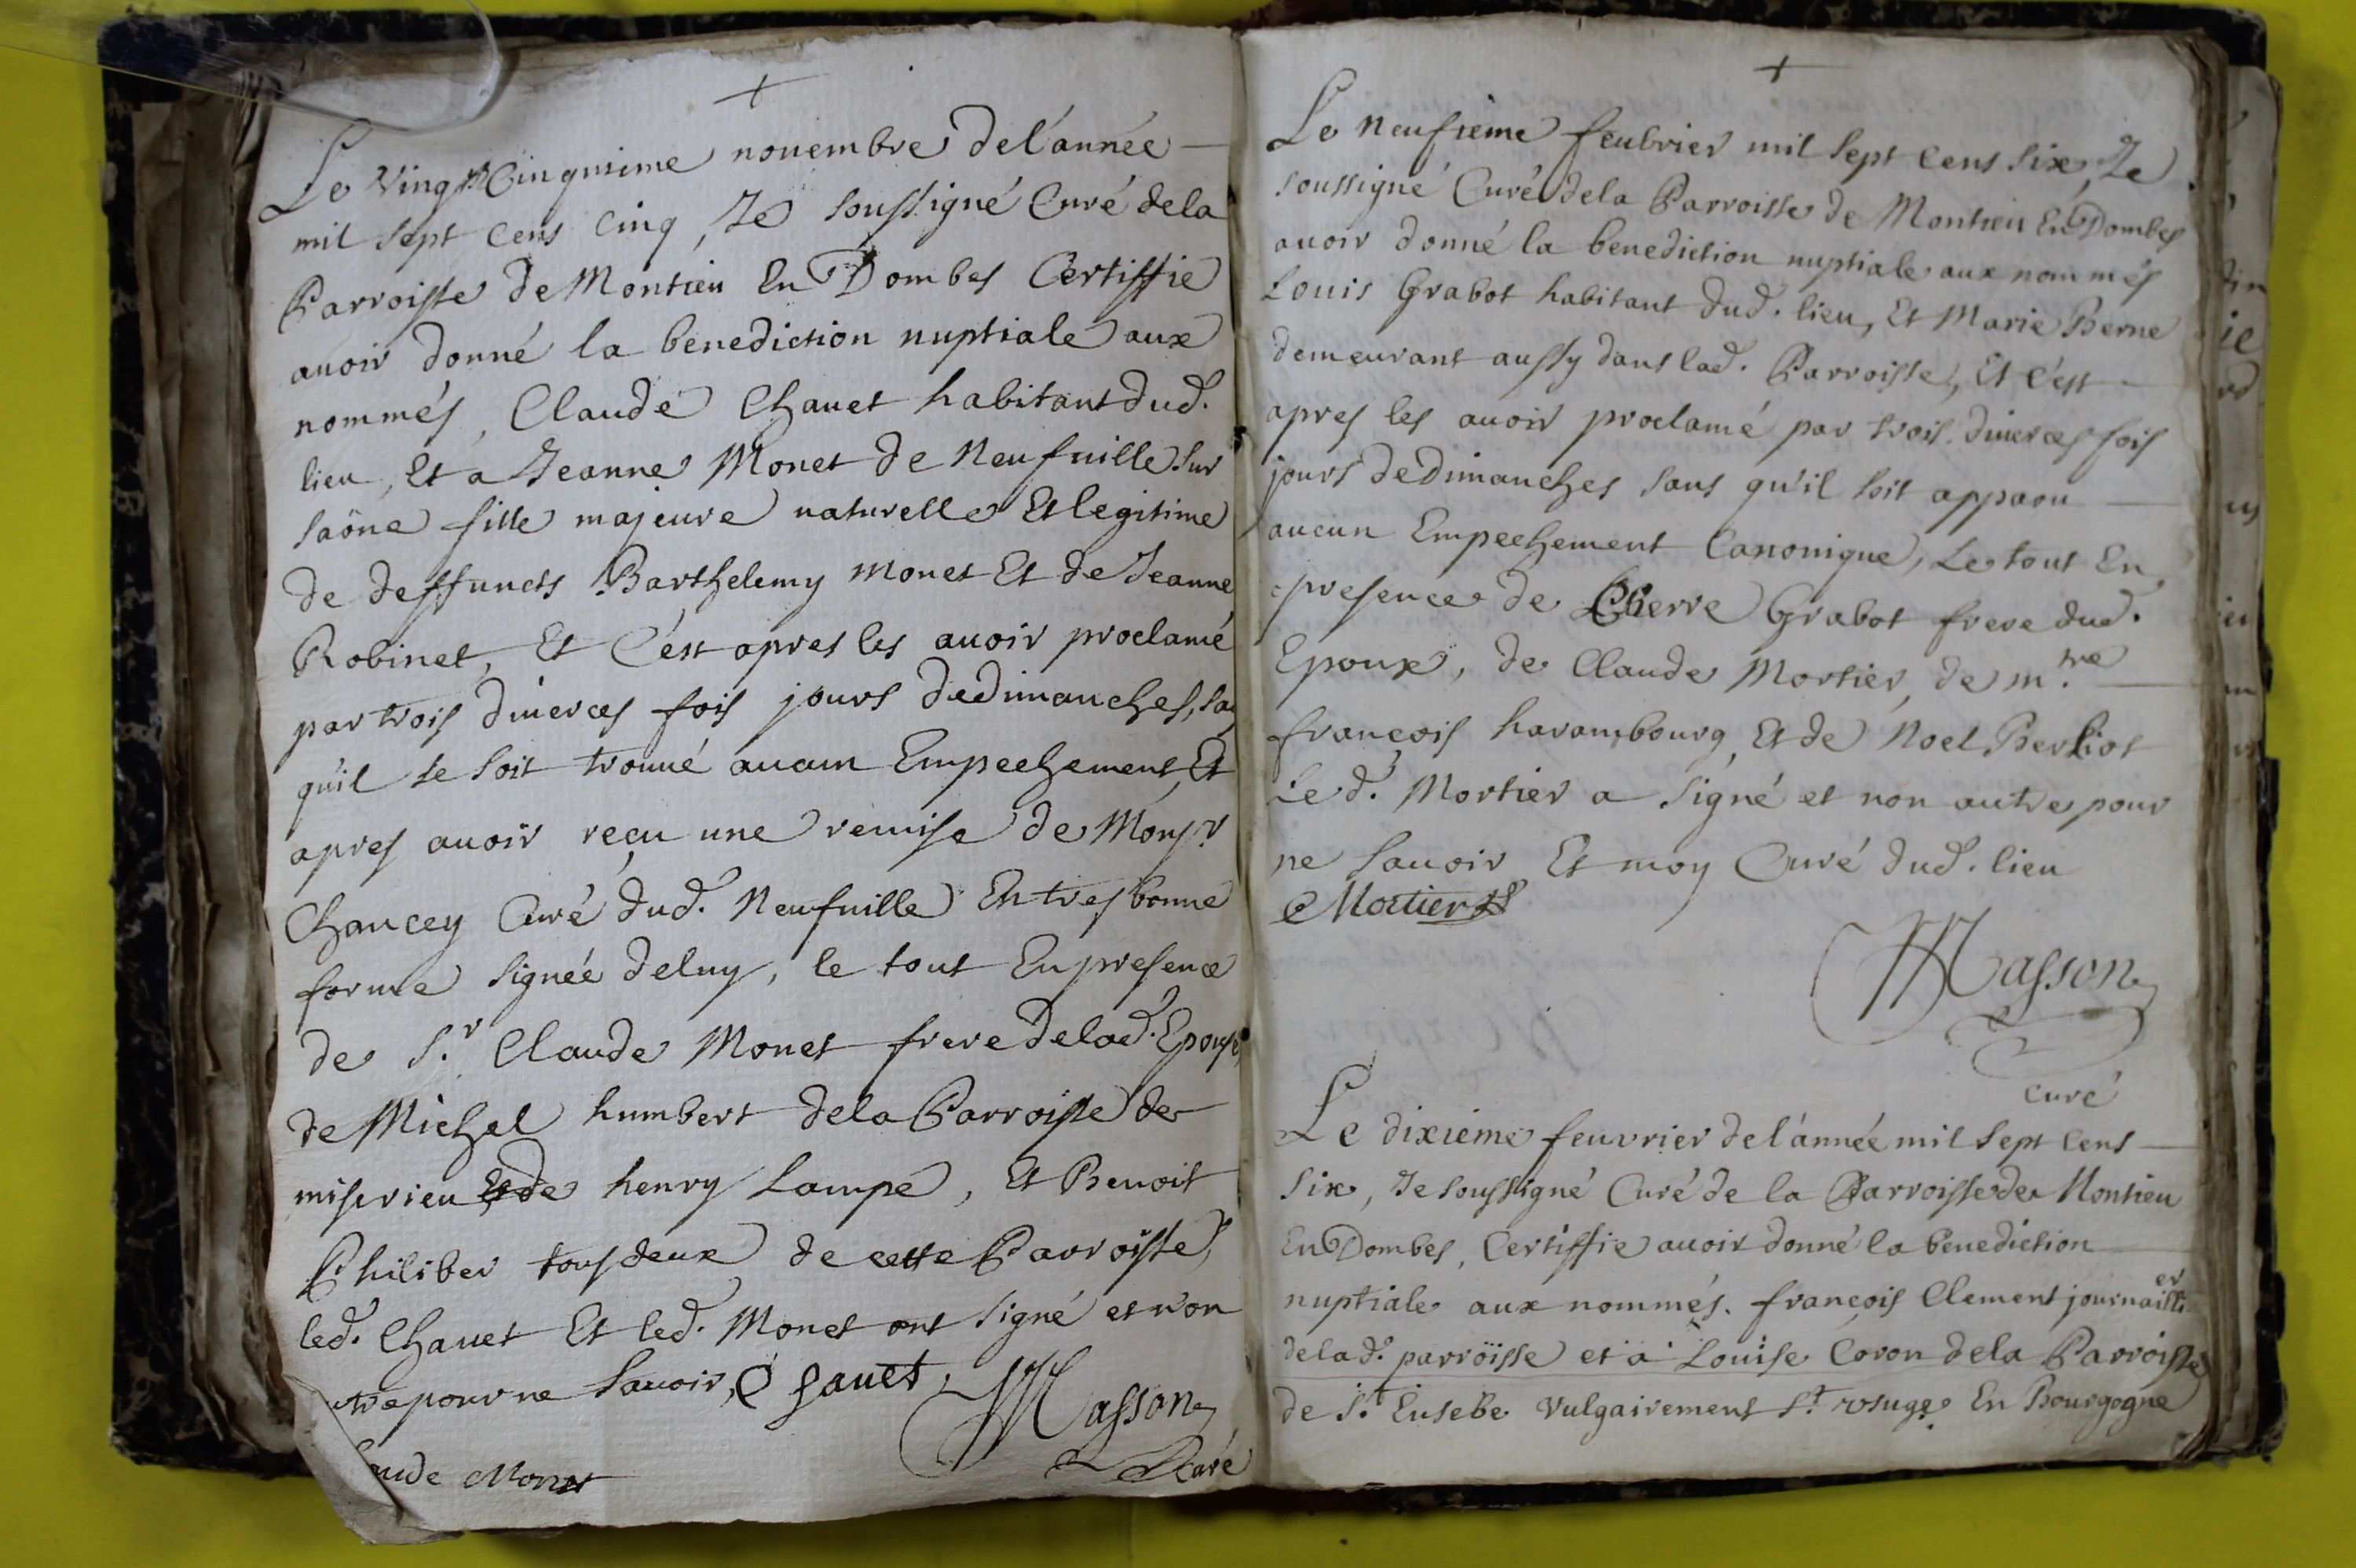 Le Vingt Cinquieme nouembre de l'année
mil sept Cens Cinq, Je soussigné Curé de la
Parroisse de Montieu En Dombes Certiffie
auoir donné la benediction nuptiale aux
nommés, Claude Chauet habitant dud.
lieu, Et a Jeanne Monet de Neufuille sur
saône fille majeure naturelle Et legitime
de deffuncts Barthelemy Monet Et de Jeanne
Robinet, Et C'est apres les auoir proclamé
par trois diuerces fois jours de dimanches, san
qu'il se soit trouué aucun Empechement, Et
apres auoir reçu une remise de Monsr
Chancey Curé dud. Neufuille En tres bonne
forme signée de luy, le tout En presence
de S.r Claude Monet frere de lad. Epouse
de Michel humbert de la Parroisse de
miserieu Et de henry Lampe, Et Benoit
Philiber tous deux de cette Parroisse,
led. Chauet Et led. Monet ont signé et non
utre pour ne sauoir, C hauet,
Masson
aude Monet Curé
Le neufieme feubrier mil sept Cens six, Je
soussigné Curé de la Parroisse de Montieu En Dombes
auoir donné la benediction nuptiale aux nommés
Louis Grabot habitant dud. lieu, Et Marie Berne
demeurant aussy dans lad. Parroisse, Et C'est
apres les auoir proclamé par trois diuerces fois
jours de dimanches sans qu'il soit apparu
aucun Empechement Canonique, Le tout En
presence de Pierre Grabot frere dud.
Epoux, de Claude Mortier, de m.tre
françois harambourg Et de Noel Berliot
Led. Mortier a signé et non autre pour
ne sauoir Et moy Curé dud. lieu
Mortier
Masson
Curé
Le dixieme feuurier de l'année mil sept Cens
six, Je soussigné Curé de la Parroisse de Montieu
En Dombes, Certiffie auoir donné la benediction
nuptiale aux nommés. françois Clement journaillier
de lad. parroisse et a Louise Coron de la Parroisse
de S.t Eusebe Vulgairement S.t vsuge En Bourgogne